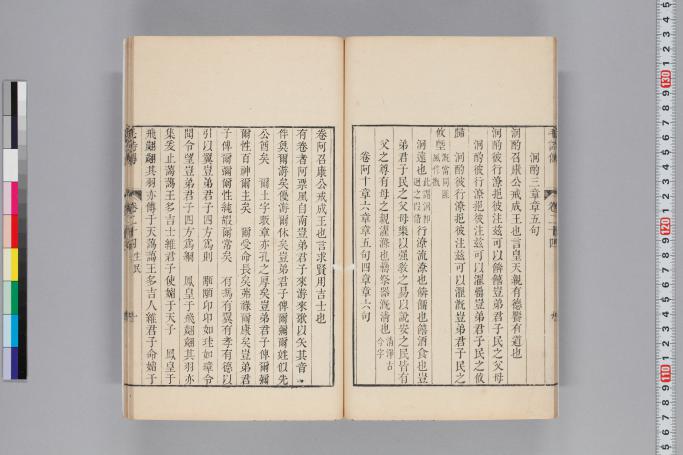 泂酌三章章五句
泂酌召康公戒成王也言皇天親有德饗有道也
泂酌彼行潦挹彼注茲可以餴饎豈弟君子民之父母
泂酌彼行潦挹彼注茲可以濯罍豈弟君子民之攸
歸
泂酌彼行潦挹彼注茲可以濯溉豈弟君子民之
攸塈
泂遠也
行潦流潦也餴餾也饎酒食也豈
弟君子民之父母樂以强敎之易以說安之民皆有
父之尊有母之親濯滌也罍祭器溉清也
卷阿十章六章章五句四章章六句
卷阿召康公戒成王也言求賢用吉士也
有卷者阿飄風自南豈弟君子來游來歌以矢其音
伴奐爾游矣優游爾休矣豈弟君子俾爾彌爾性似先
公酋矣 爾土宇昄章亦孔之厚矣豈弟君子俾爾彌
爾性百神爾主矣 爾受命長矣茀祿爾康矣豈弟君
子俾爾彌爾性純嘏爾常矣 有馮有翼有孝有德以
引以翼豈弟君子四方爲則 顒顒卬卬如珪如璋令
聞令望豈弟君子四方爲綱 鳳皇于飛翽翽其羽亦
集爰止藹藹王多吉士維君子使媚于天子 鳳皇于
飛翽翽其羽亦傅于天藹藹王多吉人維君子命媚于